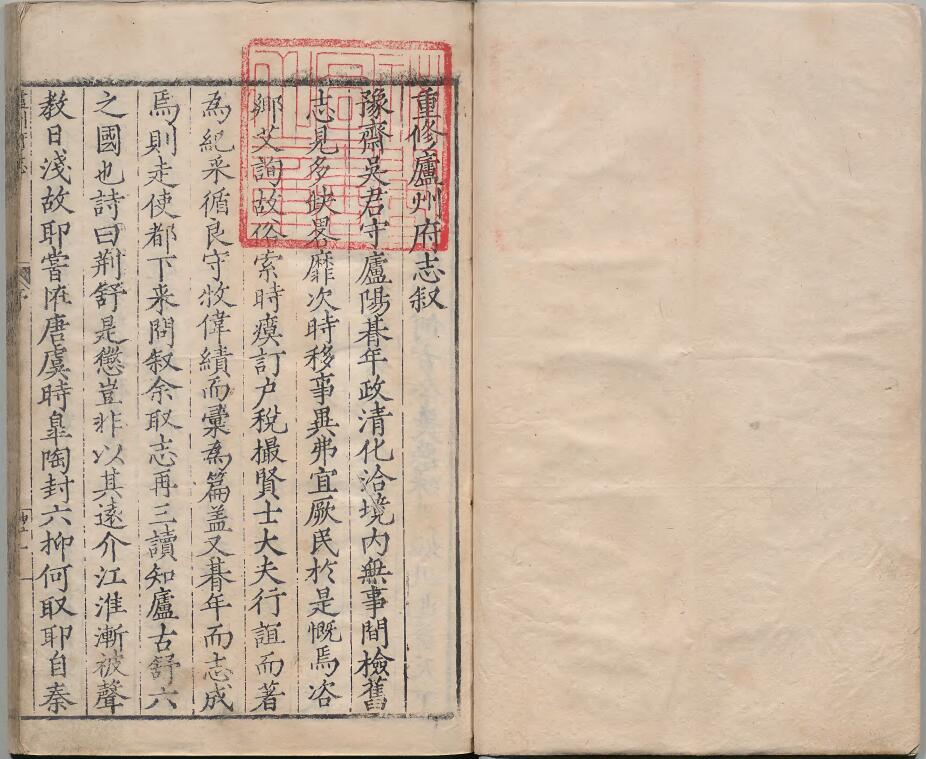 重修廬州府志叙
豫齋吳君守廬陽朞年政清化洽境内無事間檢舊
志見多缺畧靡次時移事異弗宜厥民於是慨焉咨
鄉艾詢故俗索時瘼訂户稅撮賢士大夫行誼而著
為紀采循良守牧偉績而彙為篇盖又朞年而志成
焉則走使都下来問叙余取志再三讀知廬古舒六
之國也詩曰荆舒是懲豈非以其遠介江淮漸被聲
教日淺故耶嘗阺唐虞時皐陶封六抑何取耶自秦